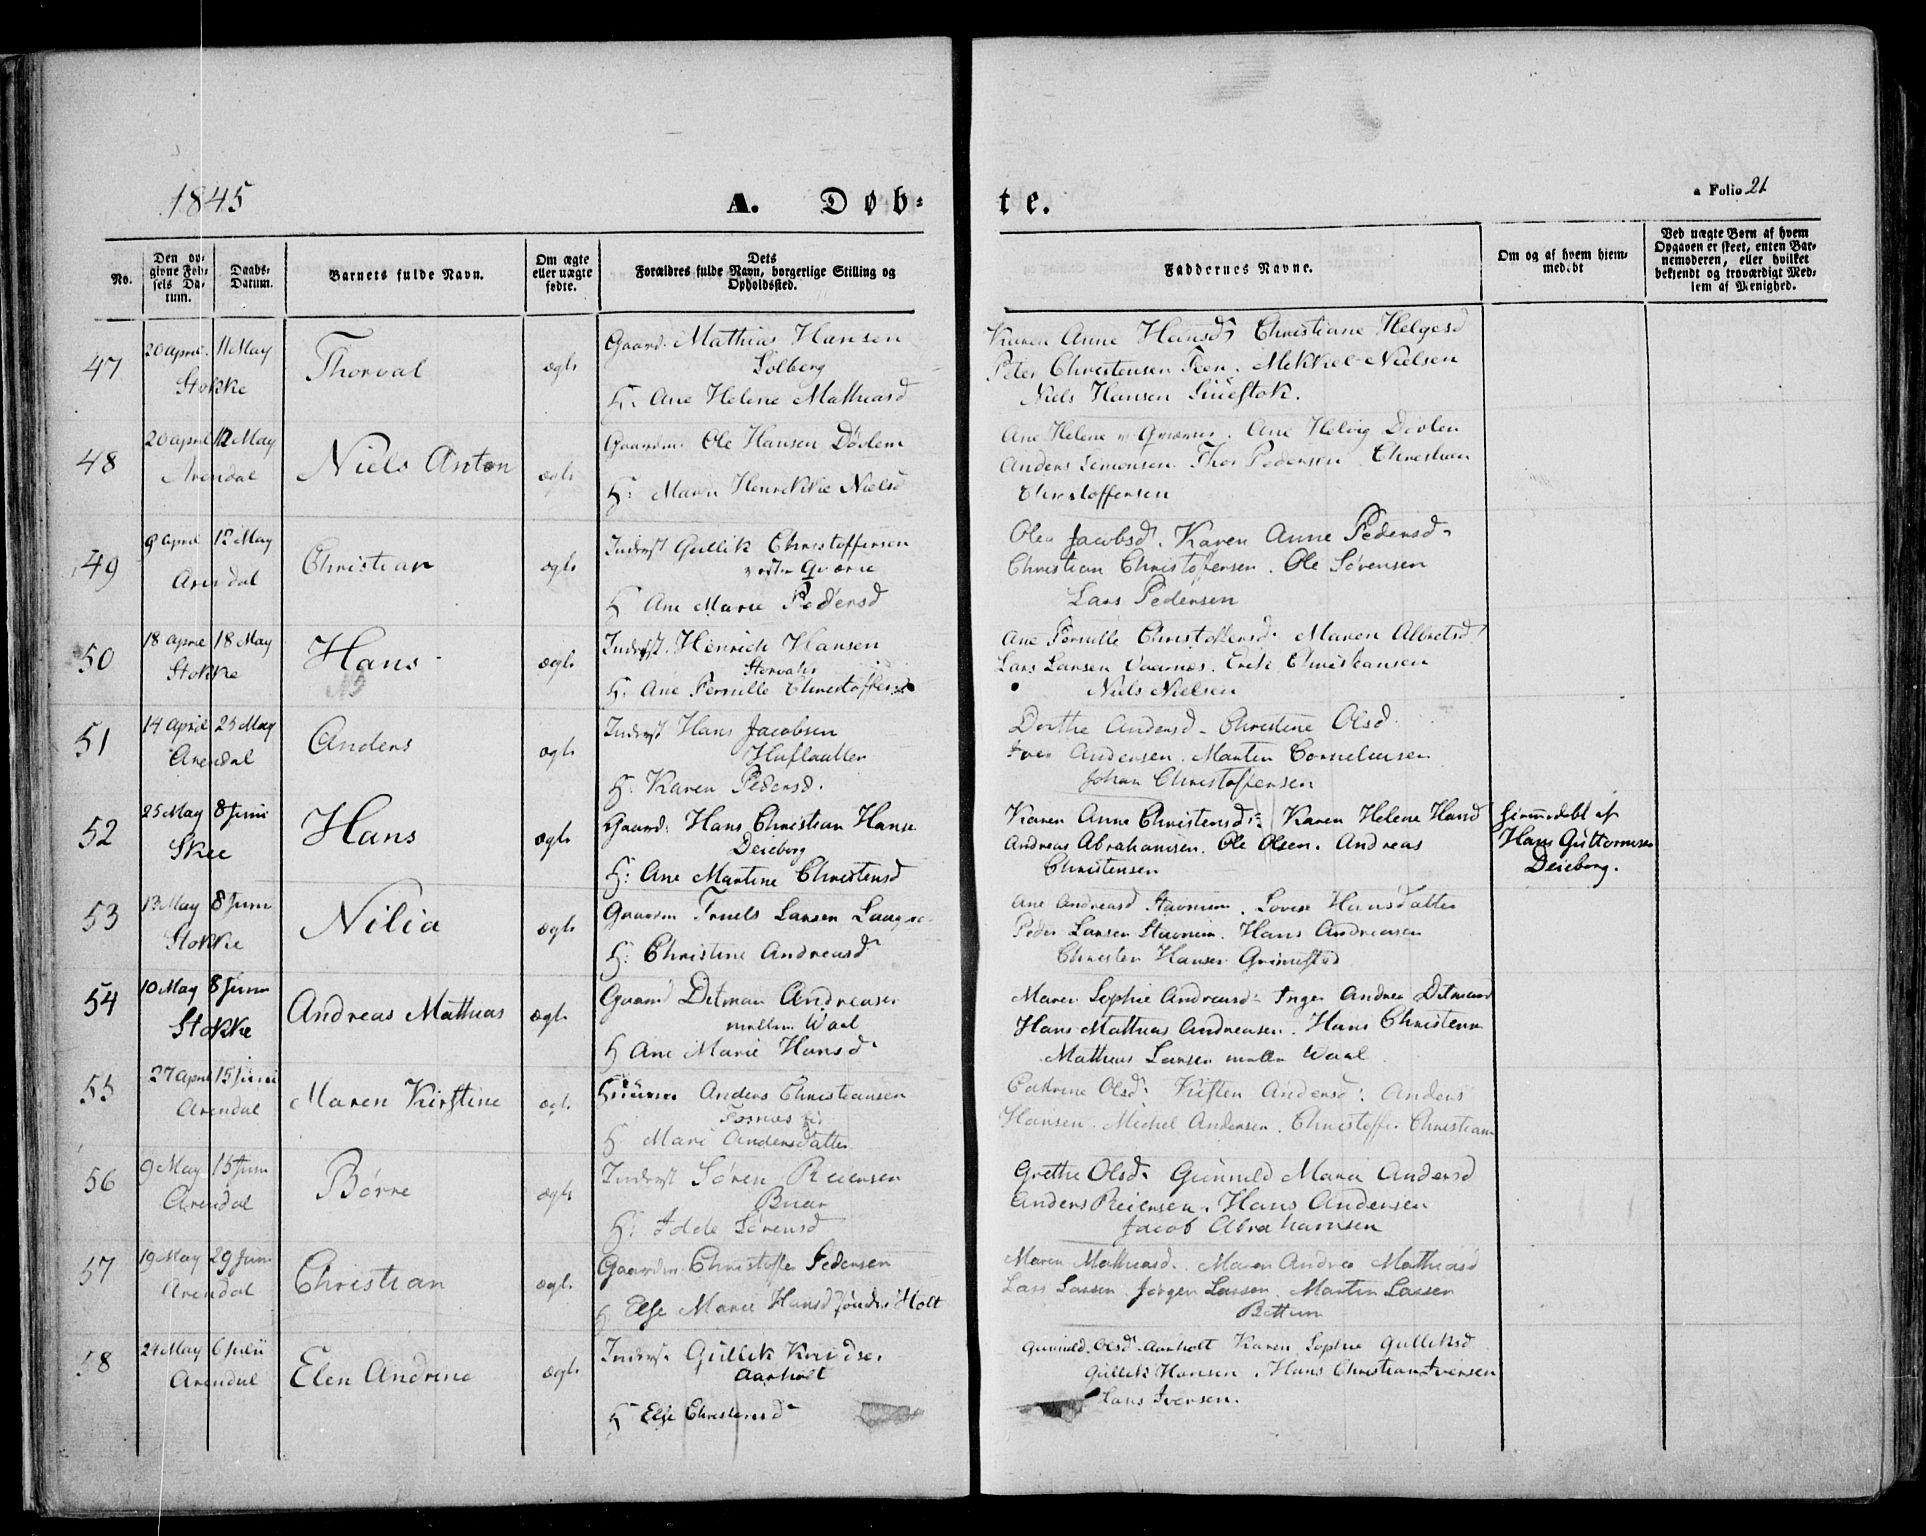 1845
A. Døb-
te.
a Folio 21
No.
Den op-
givne Fød-
sels Da-
tum.
Daabs-
Datum.
Barnets fulde Navn.
Om ægte
eller uægte
fødte.
Dets
Forældres fulde Navn, borgerlige Stilling og
Opholdssted.
Faddernes Navne.
Om og af hvem hjem-
medøbt
Ved uægte Børn af hvem
Opgaven er skeet, enten Bar-
nemoderen, eller hvilket
bekjendt og troværdigt Med-
lem af Menighed.
47
20 April 11 May
Stokke
Thorval
ægte
Gaard. Mathias Hansen
Solberg
H. Ane Helene Mathiasd
Karen Anne Hansd Christiane Helgesd
Peter Christensen Feen. Mekkel Nielsen
Niels Hansen
48
20 April 12 May
Arendal
Niels Anton
ægte
Gaardm. Ole Hansen Døvlem
H: Maren Henrikke Nielsd
Ane Helene Ane Helvig Dovlen
Anders Simonsen. Thor Pedersen. Christian
Christoffersen
49
9 April 12 May
Arendal
Christian
ægte
Inderst Gullik Christoffersen
vestre Qværne
H Ane Marie Pedersd
Olea Jacobsd. Karen Anne Pedersd.
Christian Christoffersen. Ole Sørensen
Lars Pedersen
50
18 April 18 May
Stokke
Hans
ægte
Inderst. Henrich Hansen
H. Ane Pernille Christoffersd
Ane Pernille Christoffersd. Maren Albretsd
Lars Larsen Vaarnæs. Christiansen
Niels Nielsen
51
14 April 25 May
Arendal
Anders
ægte
Inderst Hans Jacobsen
H. Karen Pedersd.
Dorthe Andersd. Christine Olsd.
Iver Andersen. Marten Corneliussen
Johan Christoffersen
52
25 May 8 Juni
Skee
Hans
ægte
Gaard: Hans Christian Hanse
Deieborg
H: Ane Martine Christensd
Karen Anne Christensd: Karen Helene Hansd
Andreas Abrahamsen. Ole Olsen. Andreas
Christensen
hjemmedøbt af
Hans Guttormsen
Deieborg.
53
13 May 8 Juni
Stokke
Nilia
ægte
Gaardm Truels Larsen
H: Christine Andreasd
Ane Andreasd Stavnum. Lovise Hansdatter
Peder Larsen Stavnum. Hans Andreasen
Christen Hansen Grimestad
54
10 May 8 Juni
Stokke
Andreas Mathias
ægte
Gaard Ditman Andreasen
mellem Waal
H Ane Marie Hansd
Maren Sophie Andreasd: Inger Andrea Ditmansd
Hans Mathias Andreasen. Hans Christensen
Mathias Larsen mellem Waal
55
27 April 15 Juni
Arendal
Maren Kirstine
ægte
Huusm Anders Christiansen
Fossnæs
H Mari Andersdatter
Cathrine Olsd: Kisten Andersd: Anders
Hansen. Michel Andersen. Christoffer Christian
56
9 May 15 Juni
Arendal
Børre
ægte
Inderst Søren Reiersen
Buar
H: Idde Sørensd
Grethe Olsd. Gunnild Maria Andersd
Anders Reiersen. Hans Andersen
Jacob Abrahamsen
57
19 May 29 Juni
Arendal
Christian
ægte
Gaardm. Christoffer Pedersen
H. Else Marie Hansd søndre Holt
Maren Mathiasd. Maren Andrea Mathiasd
Lars Larsen. Jørgen Larsen. Martin Larsen
Bettum
58
24 May 6 Julii
Arendal
Elen Andrine
ægte
Inderst Gullik Knudse.
Aarholt
H Else Christensd
Gunnild Olsd Aarholt Karen Sophie Gulliksd
Gullik Hansen. Hans Christian Iversen
Hans Iversen.